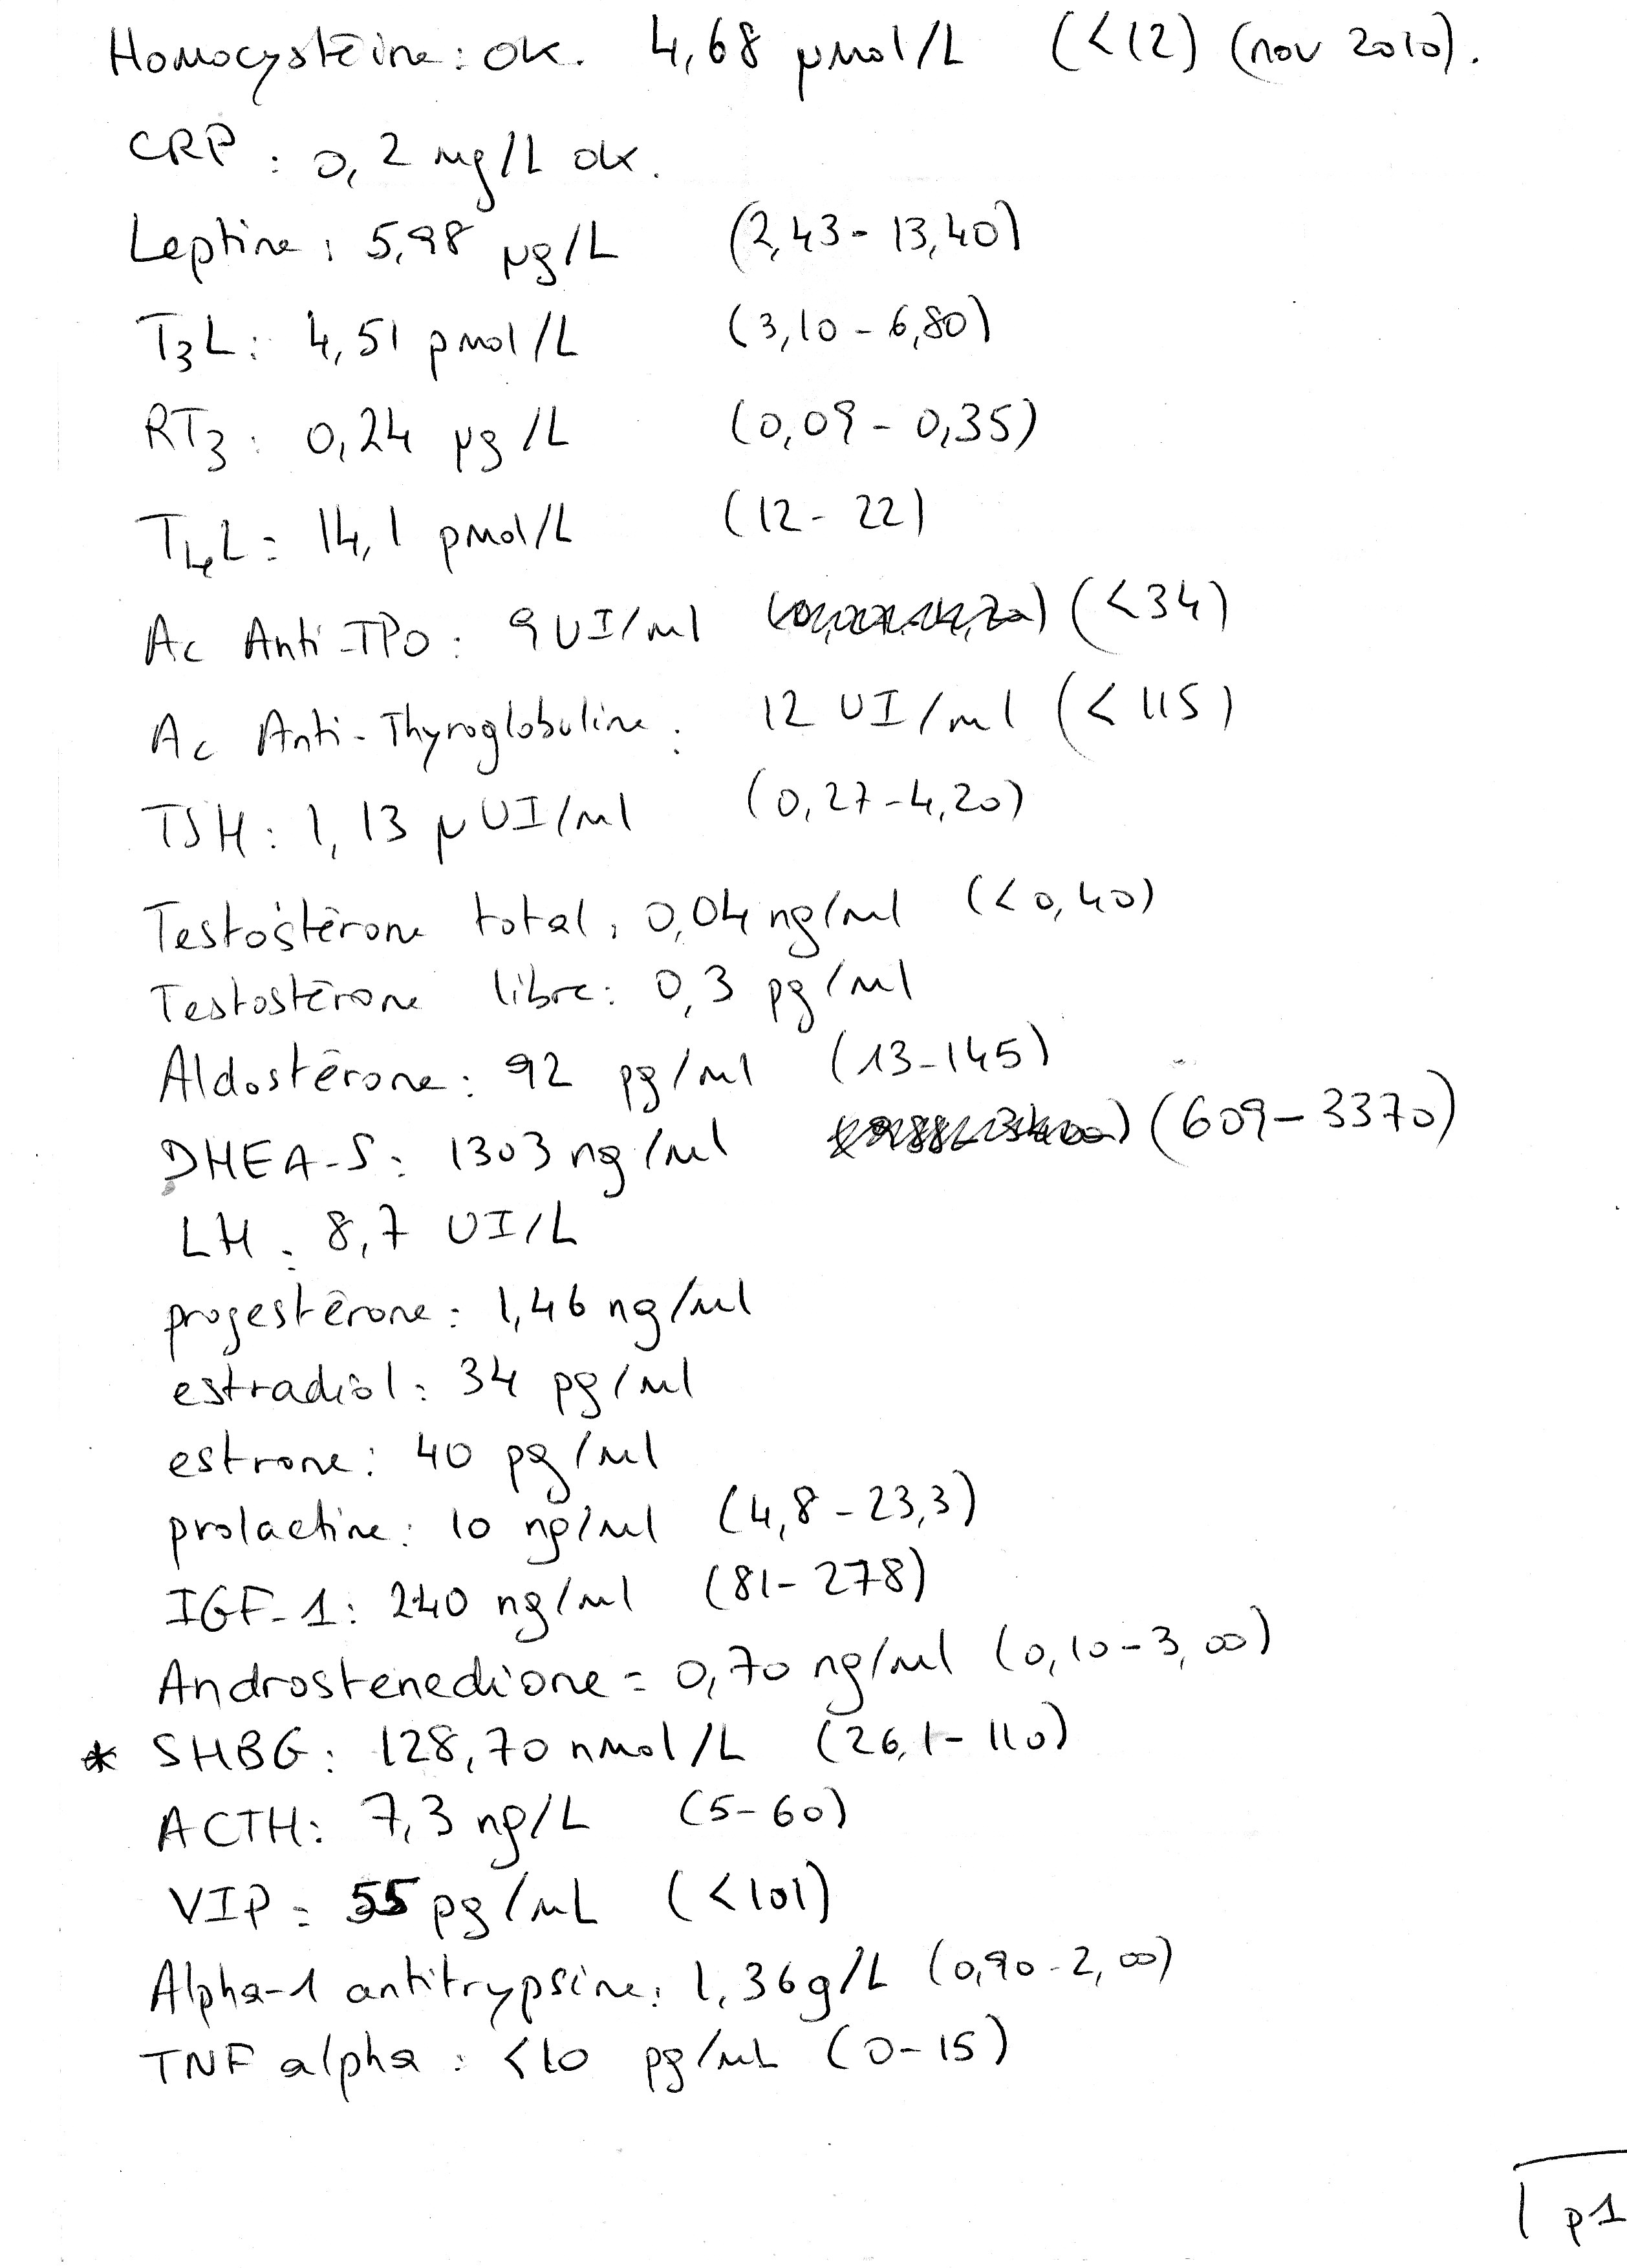 Homocystéine : ok. 4,68 µmol/L (<12) (nov 2010).
CRP : 0,2 mg/L ok.
Leptine : 5,98 µg/L (2,43 - 13,40)
T3L : 4,51 pmol/L (3,10 - 6,80)
RT3 : 0,24 µg/L (0,09 - 0,35)
T4L = 14,1 pmol/L (12 - 22)
Ac Anti-TPO : 9 UI/ml (<34)
Ac Anti-Thyroglobuline : 12 UI/ml (<115)
TSH : 1,13 µUI/ml (0,27-4,20)
Testostérone total : 0,04 ng/ml (<0,40)
Testostérone libre : 0,3 pg/ml
Aldostérone : 92 pg/ml (13-145)
DHEA-S : 1303 ng/ml (609-3370)
LH : 8,7 UI/L
progestérone : 1,46 ng/ml
estradiol : 34 pg/ml
estrone : 40 pg/ml
prolactine : 10 ng/ml (4,8 - 23,3)
IGF-1 : 240 ng/ml (81 - 278)
Androstenedione = 0,70 ng/ml (0,10 - 3,00)
* SHBG : 128,70 nmol/L (26,1 - 110)
ACTH : 7,3 ng/L (5-60)
VIP = 55 pg/mL (<101)
Alpha-1 antitrypsine : 1,36 g/L (0,90 - 2,00)
TNF alpha : <10 pg/mL (0-15)
p1